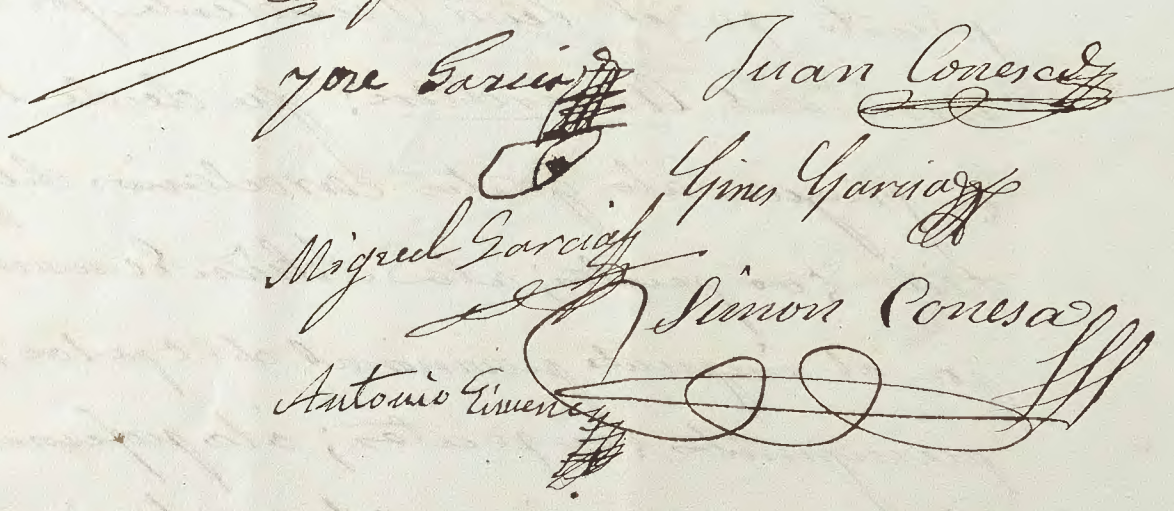 Jose Garcia Juan Conesa
Gines Garcia
Miguel Garcia
Simon Conesa
Antonio Gimenez